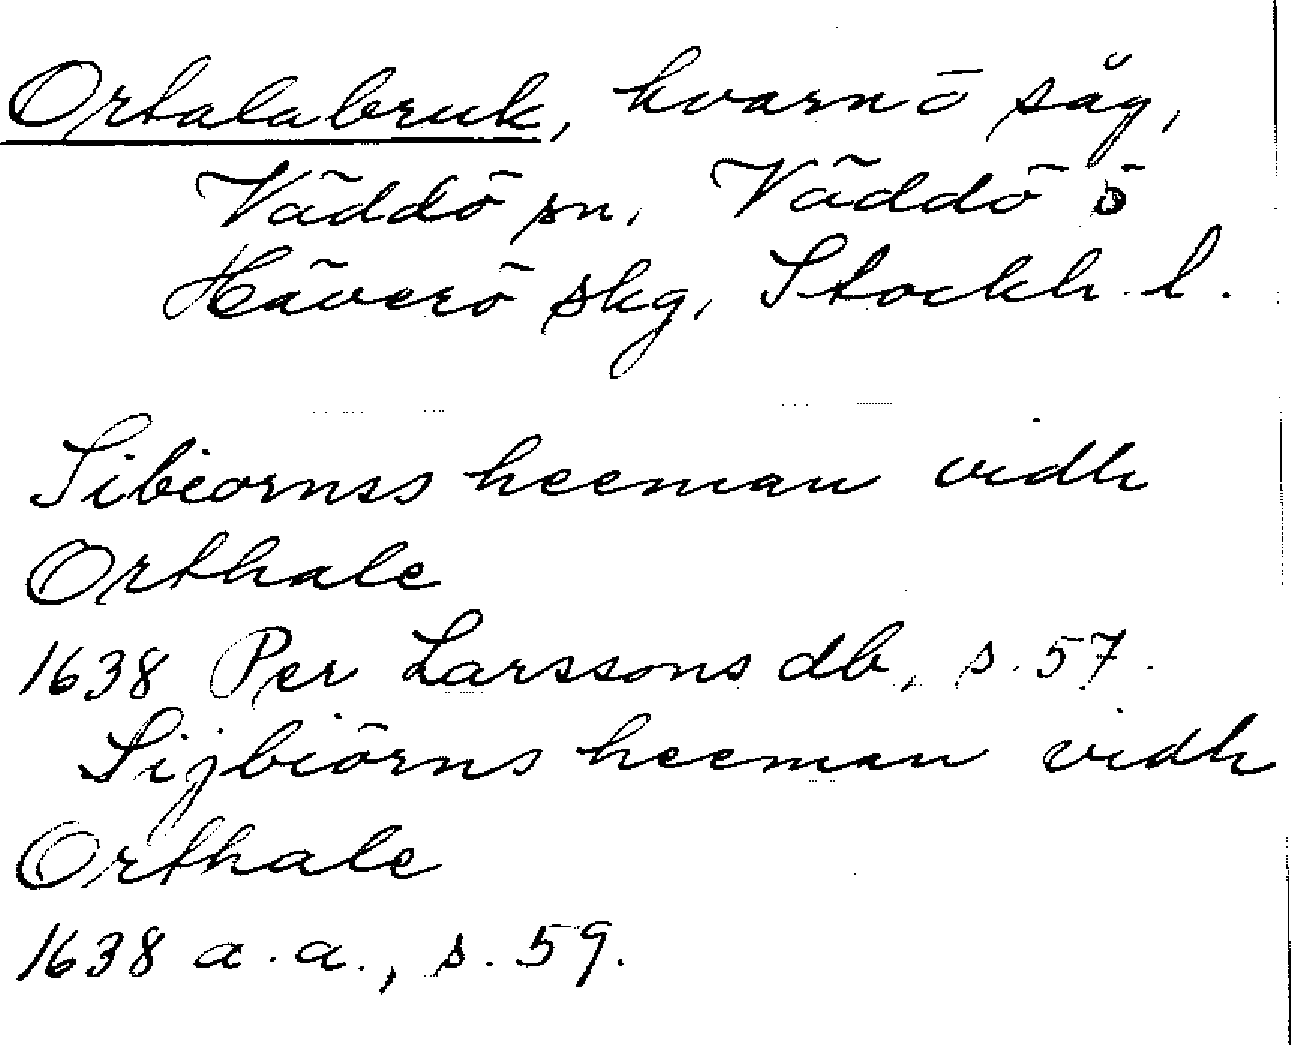 Ortalabruk, kvarn ō såg,
Väddö sn, Väddö ō
Häverö skg, Stockh. l.
Sibiornss heeman vidh
Orthale
1638 Per Larssons db, s. 57.
Sijbiörns heeman vidh
Orthale
1638 a.a., s. 59.